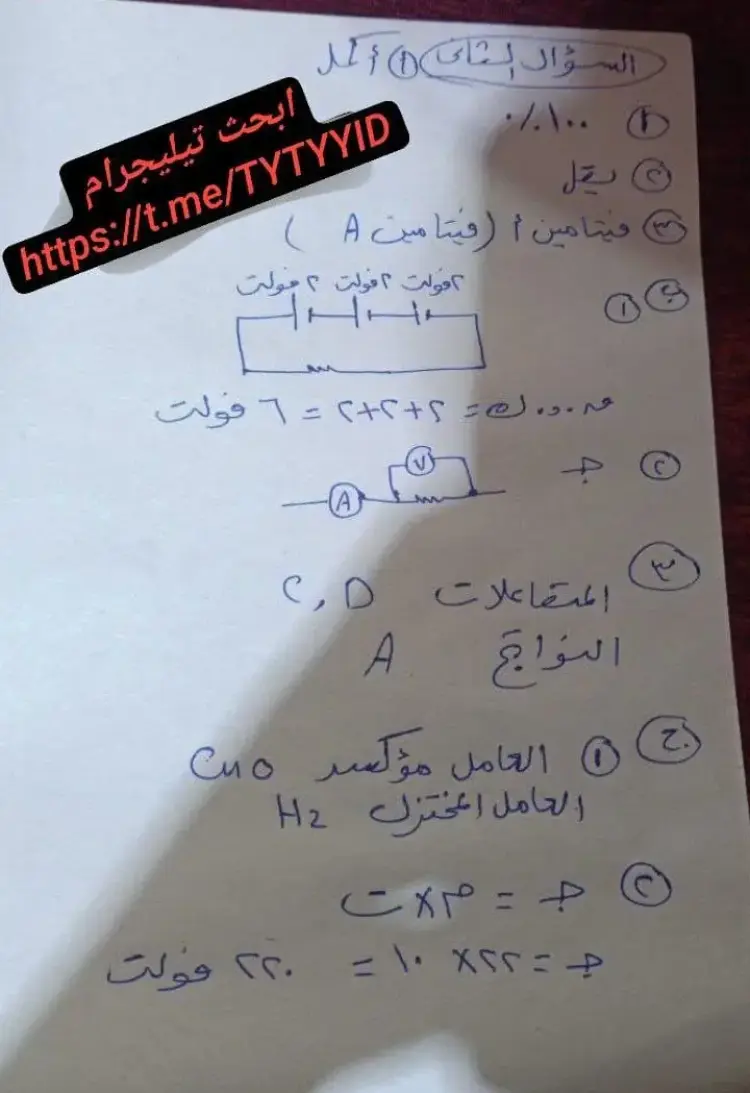 السؤال الثانى ① أكمل
ابحث تيليجرام
https://t.me/TYTYYID
① ١٠٠٪
② يقل
③ فيتامين أ (فيتامين A)
ب ①
٢ فولت ٢ فولت ٢ فولت
ق.د.ك = ٢+٢+٢ = ٦ فولت
② جـ
V
A
③ المتفاعلات C, D
النواتج A
ج ① العامل مؤكسد CuO
العامل المختزل H2
② جـ = م × ت
جـ = ٢٢ × ١٠ = ٢٢٠ فولت